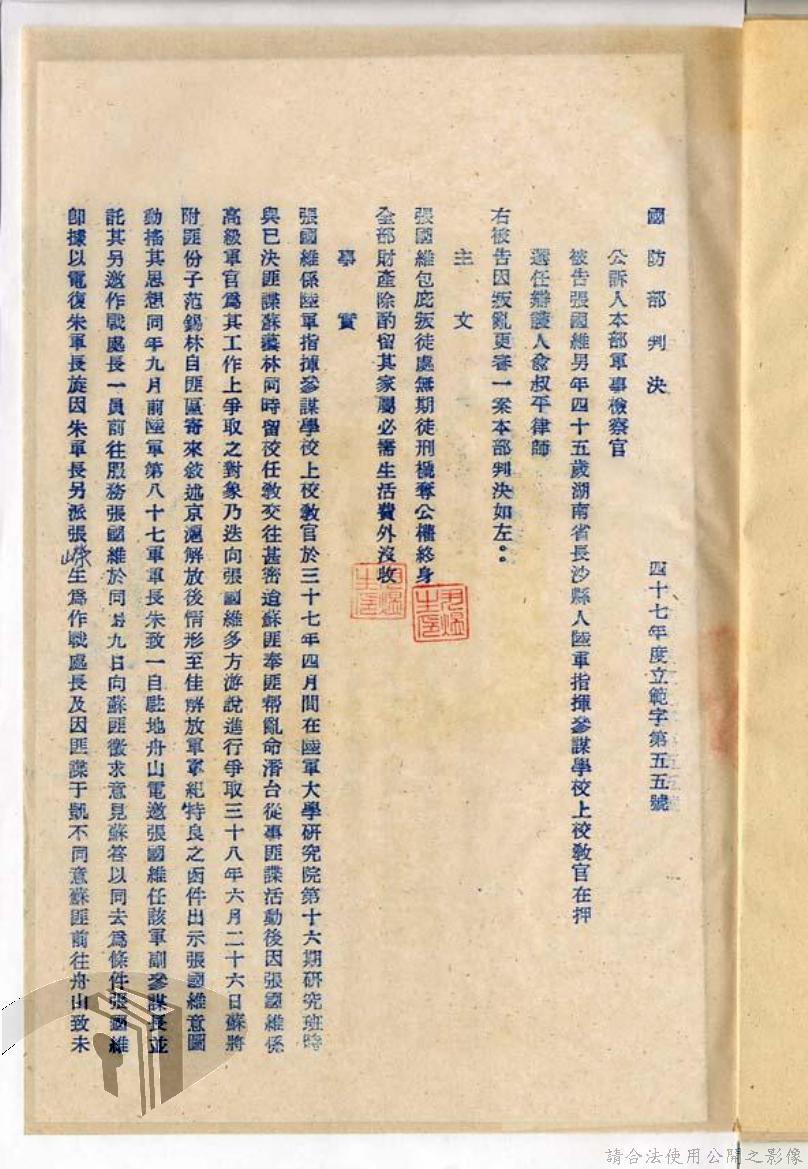 國防部判決　　四十七年度立範字第五五號
公訴人本部軍事檢察官
被告張國維男年四十五歲湖南省長沙縣人陸軍指揮參謀學校上校教官在押
選任辯護人俞叔平律師
右被告因叛亂更審一案本部判決如左：
主文
張國維包庇叛徒處無期徒刑褫奪公權終身
全部財產除酌留其家屬必需生活費外沒收
事實
張國維係陸軍指揮參謀學校上校教官於三十七年四月間在陸軍大學研究院第十六期研究班時
與已決匪諜蘇藝林同時留校任教交往甚密迨蘇匪奉匪幫亂命潛台從事匪諜活動後因張國維係
高級軍官爲其工作上爭取之對象乃迭向張國維多方游說進行爭取三十八年六月二十六日蘇將
附匪份子范錫林自匪區寄來敘述京滬解放後情形至佳解放軍軍紀特良之函件出示張國維意圖
動搖其思想同年九月前陸軍第八十七軍軍長朱致一自駐地舟山電邀張國維任該軍副參謀長並
託其另邀作戰處長一員前往服務張國維於同月九日向蘇匪徵求意見蘇答以同去爲條件張國維
卽據以電復朱軍長旋因朱軍長另派張詠生爲作戰處長及因匪諜于凱不同意蘇匪前往舟山致未
請合法使用公開之影像